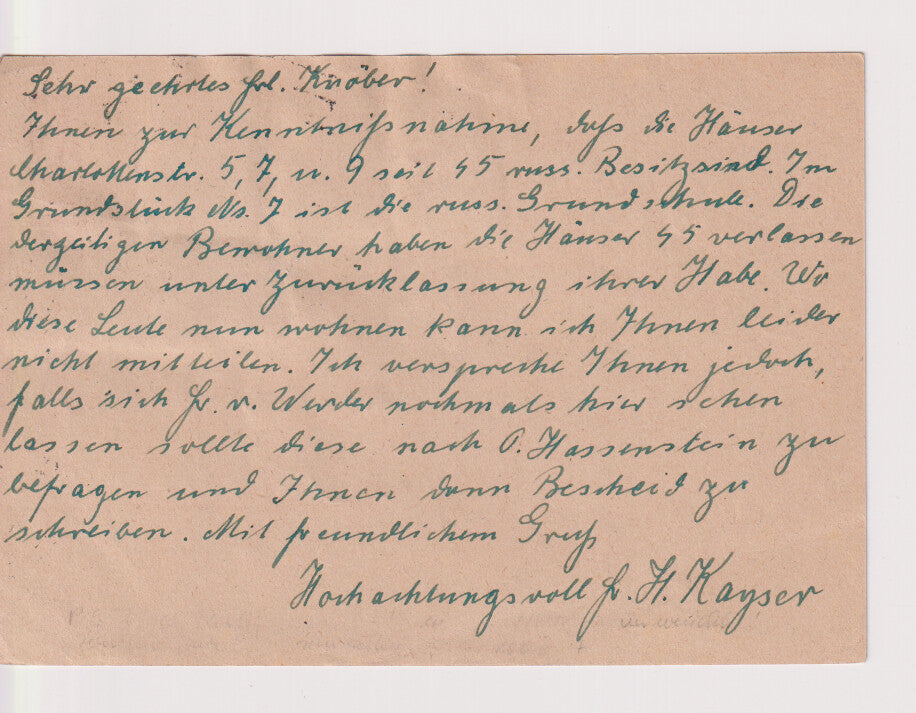 Sehr geehrtes Frl. Knöber!
Ihnen zur Kenntnißnahme, daß die Häuser
Charlottenstr. 5, 7, u. 9 seit 45 russ. Besitz sind. Im
Grundstück No. 7 ist die russ. Grundschule. Die
derzeitigen Bewohner haben die Häuser 45 verlassen
müssen unter Zurücklassung ihrer Habe. Wo
diese Leute nun wohnen kann ich Ihnen leider
nicht mitteilen. Ich verspreche Ihnen jedoch,
falls sich Fr. v. Werder nochmals hier sehen
lassen sollte diese nach O. Hassenstein zu
befragen und Ihnen dann Bescheid zu
schreiben. Mit freundlichem Gruß
Hochachtungsvoll Fr. H. Kayser